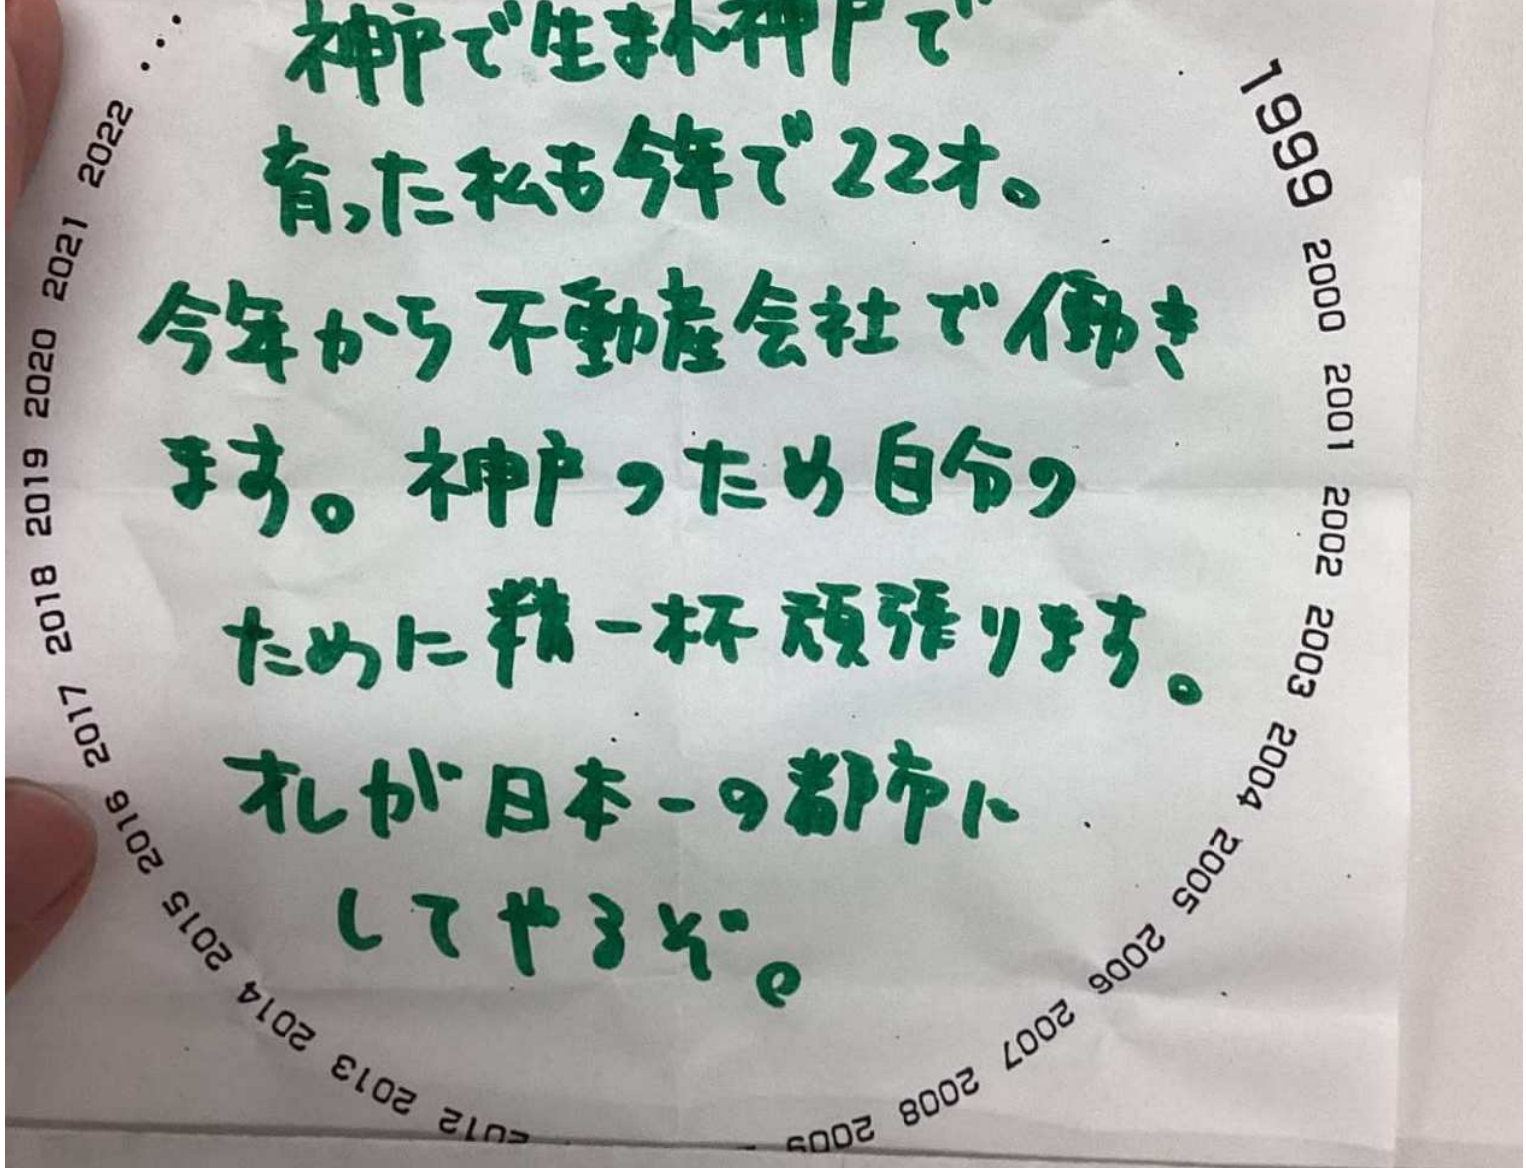 神戸で生まれ神戸で
育った私も今年で22才。
今年から不動産会社で働き
ます。神戸のため自分の
ために精一杯頑張ります。
オレが日本一の都市に
してやるぞ。
1999 2000 2001 2002 2003 2004 2005 2006 2007 2008 2009 2012 2013 2014 2015 2016 2017 2018 2019 2020 2021 2022 ...